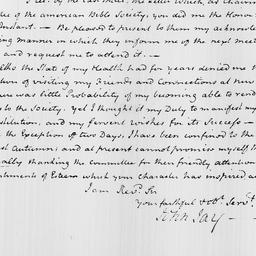 Rec.d by the last Mail, the Letter which, as chairm
tee of the american Bible Society, you did me the Honor
Instant. — Be pleased to present to them my acknowle
ing manner in which they inform me of the next meet
and request me to attend it. —
Altho the State of my Health had for years denied me t
tion of visiting my Friends and Connections at New
there was little Probability of my becoming able to rend
to the Society. Yet I thought it my Duty to manifest my
stitution, and my fervent wishes for its Success —
the Exception of two Days, I have been confined to the
st Autumn; and at present cannot promise myself t
ally thanking the committee for their friendly attention
ntiments of Esteem which your character has inspired a
I am Rev.d Sir
your faithful & ob.t Serv.t
John Jay —